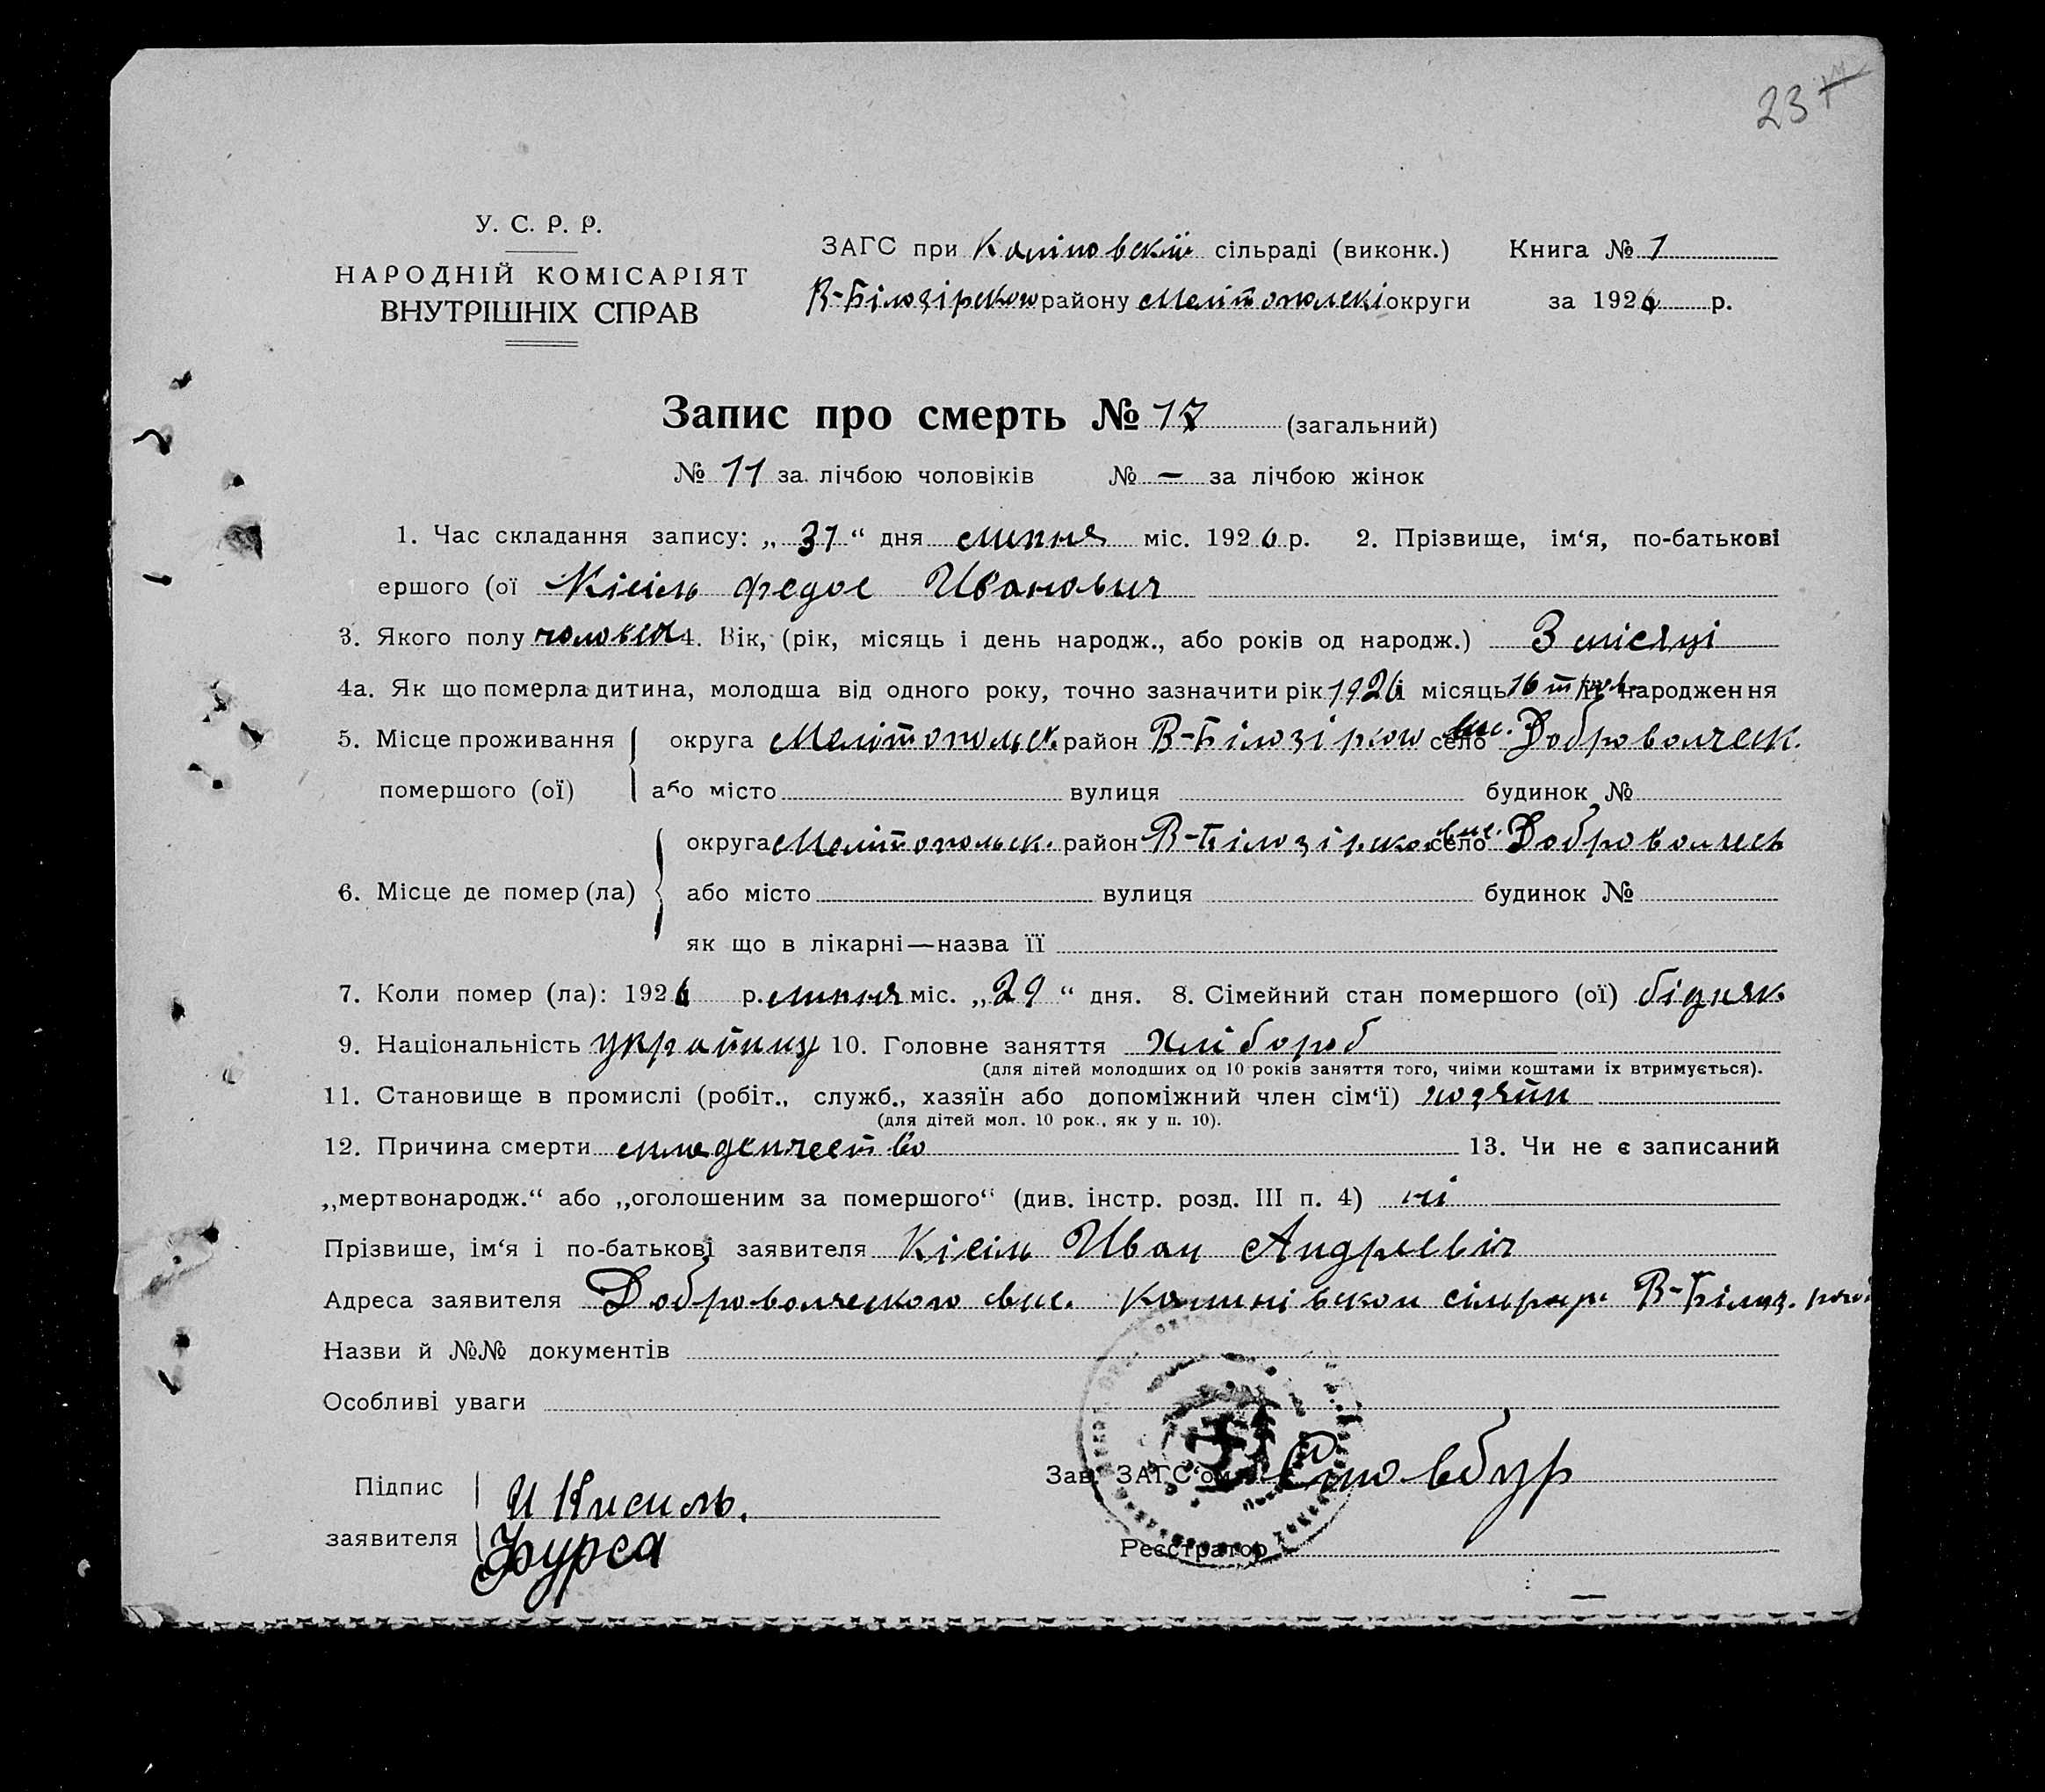 23
У. С. Р. Р.
НАРОДНІЙ КОМІСАРІЯТ
ВНУТРІШНІХ СПРАВ
ЗАГС при Каліновській сільраді (виконк.) Книга № 1
В-Білозірского району Мелітопольскі округи за 1926 р.
Запис про смерть № 17 (загальний)
№ 11 за лічбою чоловіків № — за лічбою жінок
1. Час складання запису: „ 31 “ дня липня міс. 1926 р. 2. Прізвище, ім‘я, по-батькові
ершого (ої Кісіль Федос Иванович
3. Якого полу 4. Вік, (рік, місяць і день народж., або років од народж.) 3 місяці
4а. Як що померла дитина, молодша від одного року, точно зазначити рік 1926 місяць 16 народження
5. Місце проживання округа Мелітопольск. район В-Білозірког село вис. Доброволческ.
померш​ого (ої) або місто вулиця будинок №
округа Мелітопольск. район В-Білозірког село вис. Доброволческ
6. Місце де помер (ла) або місто вулиця будинок №
як що в лікарні—назва її
7. Коли помер (ла): 1926 р. липня міс. „ 29 “ дня. 8. Сімейний стан помершого (ої) бідняк
9. Національність 10. Головне заняття хлібороб
(для дітей молодших од 10 років заняття того, чиіми коштами іх втримується).
11. Становище в промислі (робіт., служб., хазяїн або допоміжний член сім‘ї) хозяїн
(для дітей мол. 10 рок., як у п. 10).
12. Причина смерти младенчество 13. Чи не є записаний
„мертвонародж.“ або „оголошеним за помершого“ (див. інстр. розд. III п. 4) ні
Прізвише, ім‘я і по-батькові заявителя Кісіль Иван Андреевіч
Адреса заявителя Доброволческого вис. В-Білоз.
Назви й №№ документів
Особливі уваги
Підпис И Кисиль.
заявителя Фурса
Зав. ЗАГС‘ом Стовбур
Реєстратор